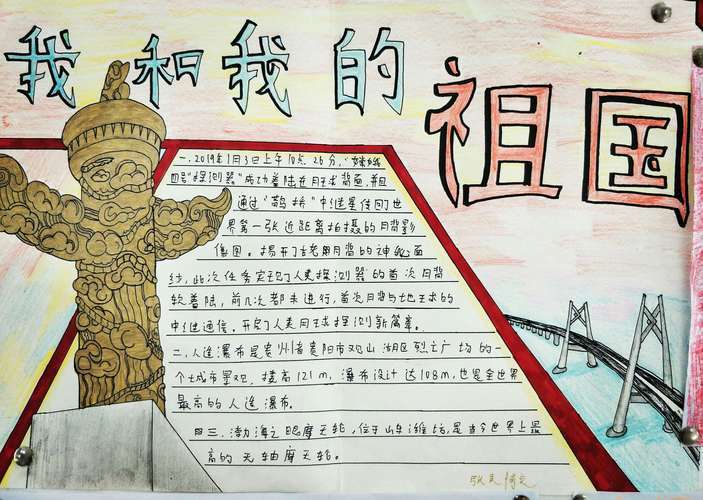 我和我的祖国
一.2019年1月3日上午10点26分,"嫦娥
四号"探测器"成功着陆在月球背面,并且
通过"鹊桥"中继星传回了世
界第一张近距离拍摄的月背影
像图。揭开了古老月背的神秘面
纱,此次任务实现了人类探测器的首次月背
软着陆,前几次都未进行,首次月背与地球的
中继通信,开启了人类月球探测新篇章。
二.人造瀑布是贵州省贵阳市观山湖区烈士广场的一
个城市景观,楼高121m,瀑布设计达108m,也是全世界
最高的人造瀑布。
三.渤海之眼摩天轮,位于山东潍坊,是当今世界上最
高的无轴摩天轮。